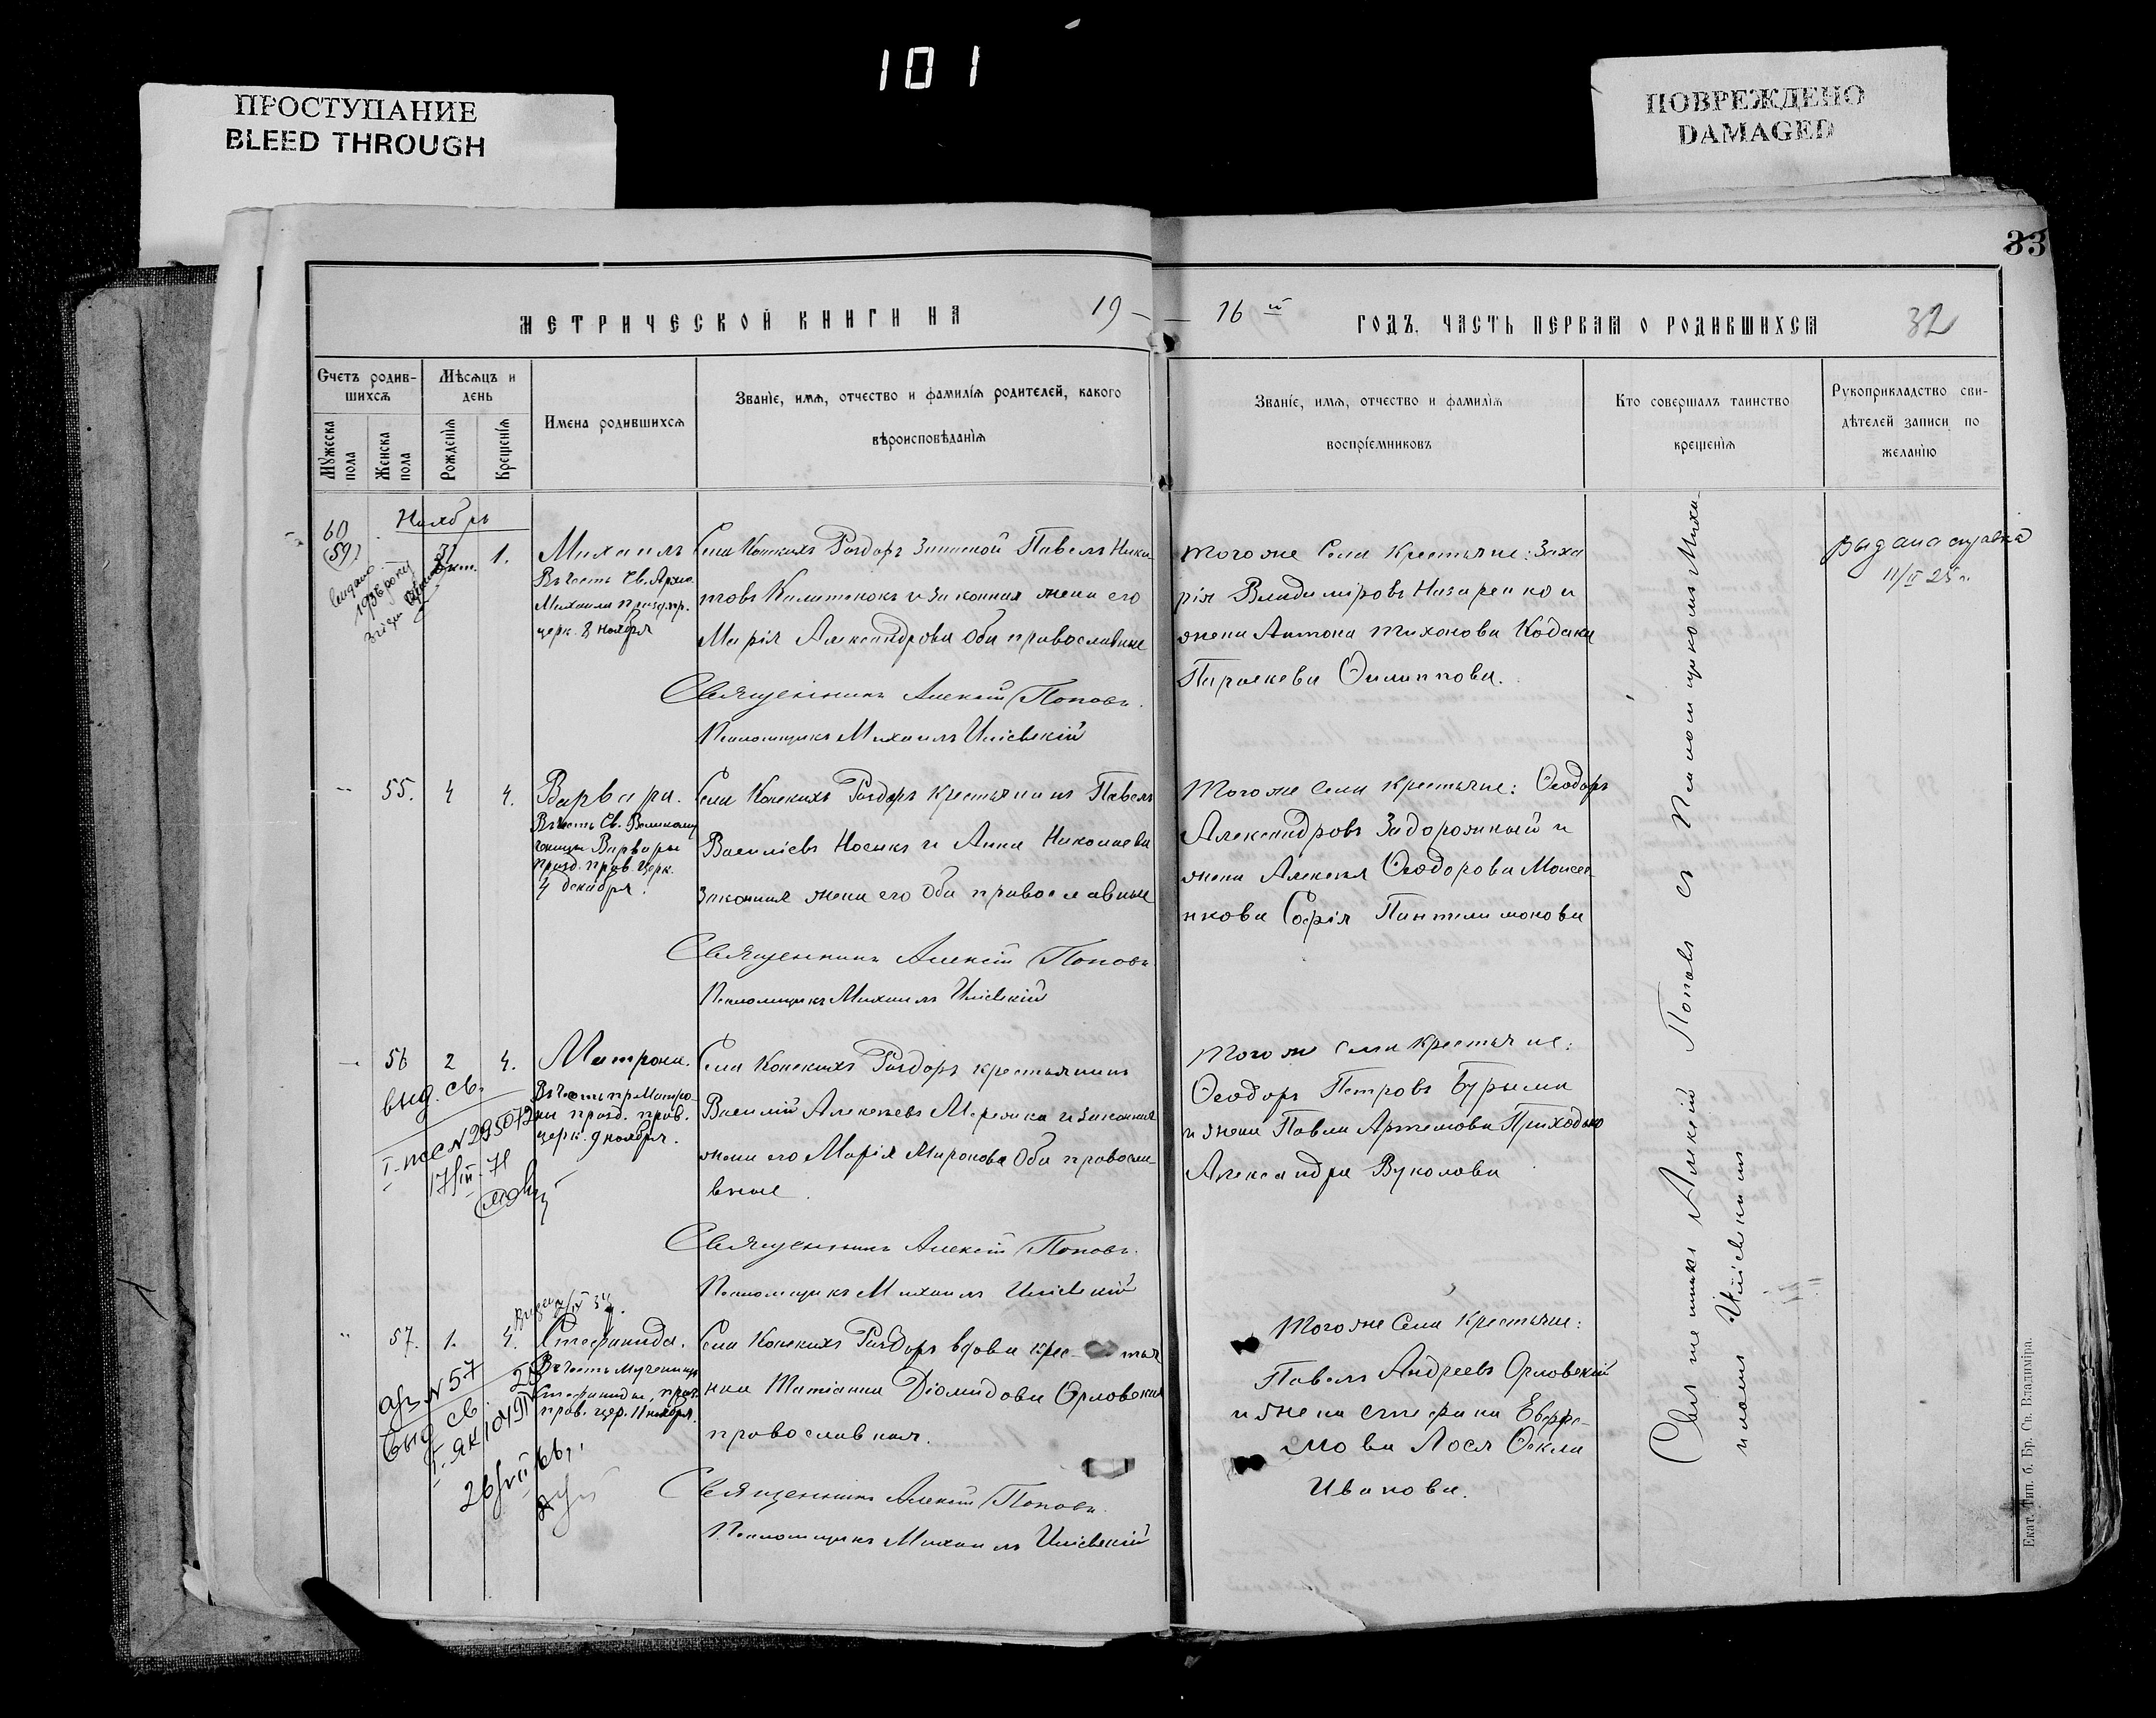 101
ПРОСТУПАНИЕ
BLEED THROUGH
ПОВРЕЖДЕНО
DAMAGED
33
МЕТРИЧЕСКОЙ КНИГИ НА 19 — — 16 й ГОДЪ, ЧАСТЬ ПЕРВАЯ О РОДИВШИХСЯ
32
Счетъ родив-
шихся
Мужеска пола
Женска пола
Мѣсяцъ и
день
Рожденія
Крещенія
Имена родившихся
Званіе, имя, отчество и фамилія родителей, какого
вѣроисповѣданія
Званіе, имя, отчество и фамилія
воспріемниковъ
Кто совершалъ таинство
крещенія
Рукоприкладство сви-
дѣтелей записи по
желанію
Ноябрь
60
(59)
31
Окт.
1.
Михаилъ
Въ честь Св. Арха.
Михаила празд. пр.
церк. 8 ноября
1936 року
Села Конскихъ Раздоръ Запасной Павелъ Ники-
товъ Калитенокъ и законная жена его
Марія Александрова оба православные
Священникъ Алексій Поповъ.
Псаломщикъ Михаилъ
того же Села крестьяне: Заха
рія Владиміровъ Назаренко и
жена Антона Тихонова Кодака
Параскева Филиппова.
Выдана справка
11/II 25 г.
55.
4
4.
Варвара.
Въ честь Св. Великому
ченицы Варвары
празд. прав. церк.
4 декабря.
Села Конскихъ Раздоръ крестьянинъ Павелъ
Василіевъ Носикъ и Анна Николаева
законная жена его оба православные
Священникъ Алексій Поповъ
Псаломщикъ Михаилъ
Того же села крестьяне: Ѳеодоръ
Александровъ Задорожный и
жена Алексѣя Ѳеодорова Моисее-
нкова Софія Пантелимонова
56
2
4.
Матрона.
Въ честь пр. Матро-
ны празд. прав.
церк. 9 ноября.
выд. св.
I-ЖС N 295072
17/III-71
Села Конскихъ Раздоръ крестьянинъ
Василій Алексѣевъ Мережка и законная
жена его Марія Миронова оба правосла-
вные
Священникъ Алексій Поповъ.
Псаломщикъ Михаилъ
Того же села крестьяне:
Ѳеодоръ Петровъ Бурыма
и жена Павла Артемова Приходько
Александра Вуколова
57.
1.
4.
Стефанида.
Въ честь мученицы
Стефаниды, праз.
прав. цер. 11 ноября.
N 57
выд св.
Села Конскихъ Раздоръ вдова крес- тья
нка Татіана Діомидова Орловская
православная.
Священникъ Алексій Поповъ.
Псаломщикъ Михаилъ
Того же Села крестьяне:
Павелъ Андреевъ Орловскій
и жена Стефана Евфре-
мова Лося Ѳекла
Иванова.
Священникъ Алексій Поповъ съ Псаломщикомъ Михаи-
ломъ
Екат. Тип. б. Бр. Св. Владиміра.